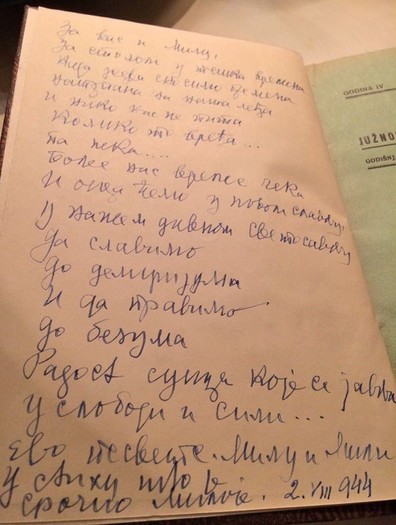 За вас и Милу,
За столом у тешка времена
Када бремена
на наша леђа
И нико нас не пита
Колико то вређа...
Па нека....
Боље нас време чека
И онда ћемо у новом слављу,
У нашем дивном светосављу
Да славимо
до делиријума
И да правимо
до безума
Радост сунца које се јавља
у слободи и сили...
Ево посвете Милу и Мили
у стиху што је
срочио Милоје. 2. VIII 944
GODINA IV
JUŽNO
GODIŠNJ